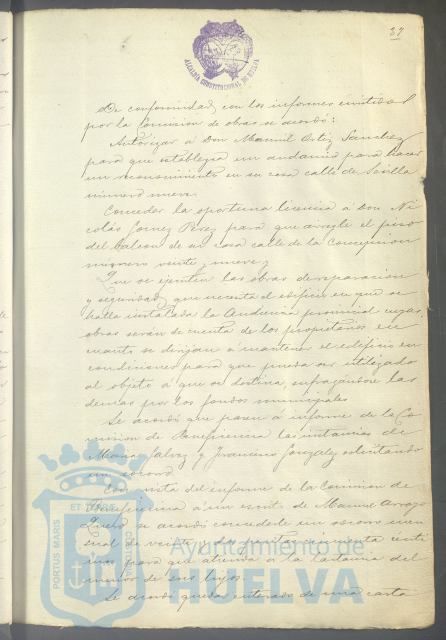 37
ALCALDIA CONSTITUCIONAL DE HUELVA
De conformidad con los informes emitidos
por la Comision de obras se acordó:
Autorizar á Don Manuel Ortiz Sanchez
para que establezca un andamio para hacer
un reconocimiento en su casa calle de Sevilla
número nueve.
Conceder la oportuna licencia á don Ni
colás Gomez Perez para que arregle el piso
del balcon de su casa calle de la Concepcion
número veinte y nueve y
Que se ejecuten las obras de reparacion
y seguridad que necesita el edificio en que se
halla instalada la Audiencia provincial cuyas
obras serán de cuenta de los propietarios en
cuanto se dirijan á mantener el edificio en
condiciones para que pueda ser utilizado
al objeto á que se destina, sufragándose las
demas por los fondos municipales.
Se acordó que pasen á informe de la Co
mision de Beneficencia las instancias de
Maria Galvez y Francisco Gonzalez solicitando
un socorro.
Con vista del informe de la Comision de
Beneficencia á un escrito de Manuel Arroyo
se acordó concederle un socorro men
sual de veinte y dos pesetas cincuenta centi
mos para que atienda á la lactancia del
menor de sus hijos.
Se acordó quedar enterado de una carta
PORTUS MARIS ET TERRAE CUSTODIA
Ayuntamiento de
HUELVA